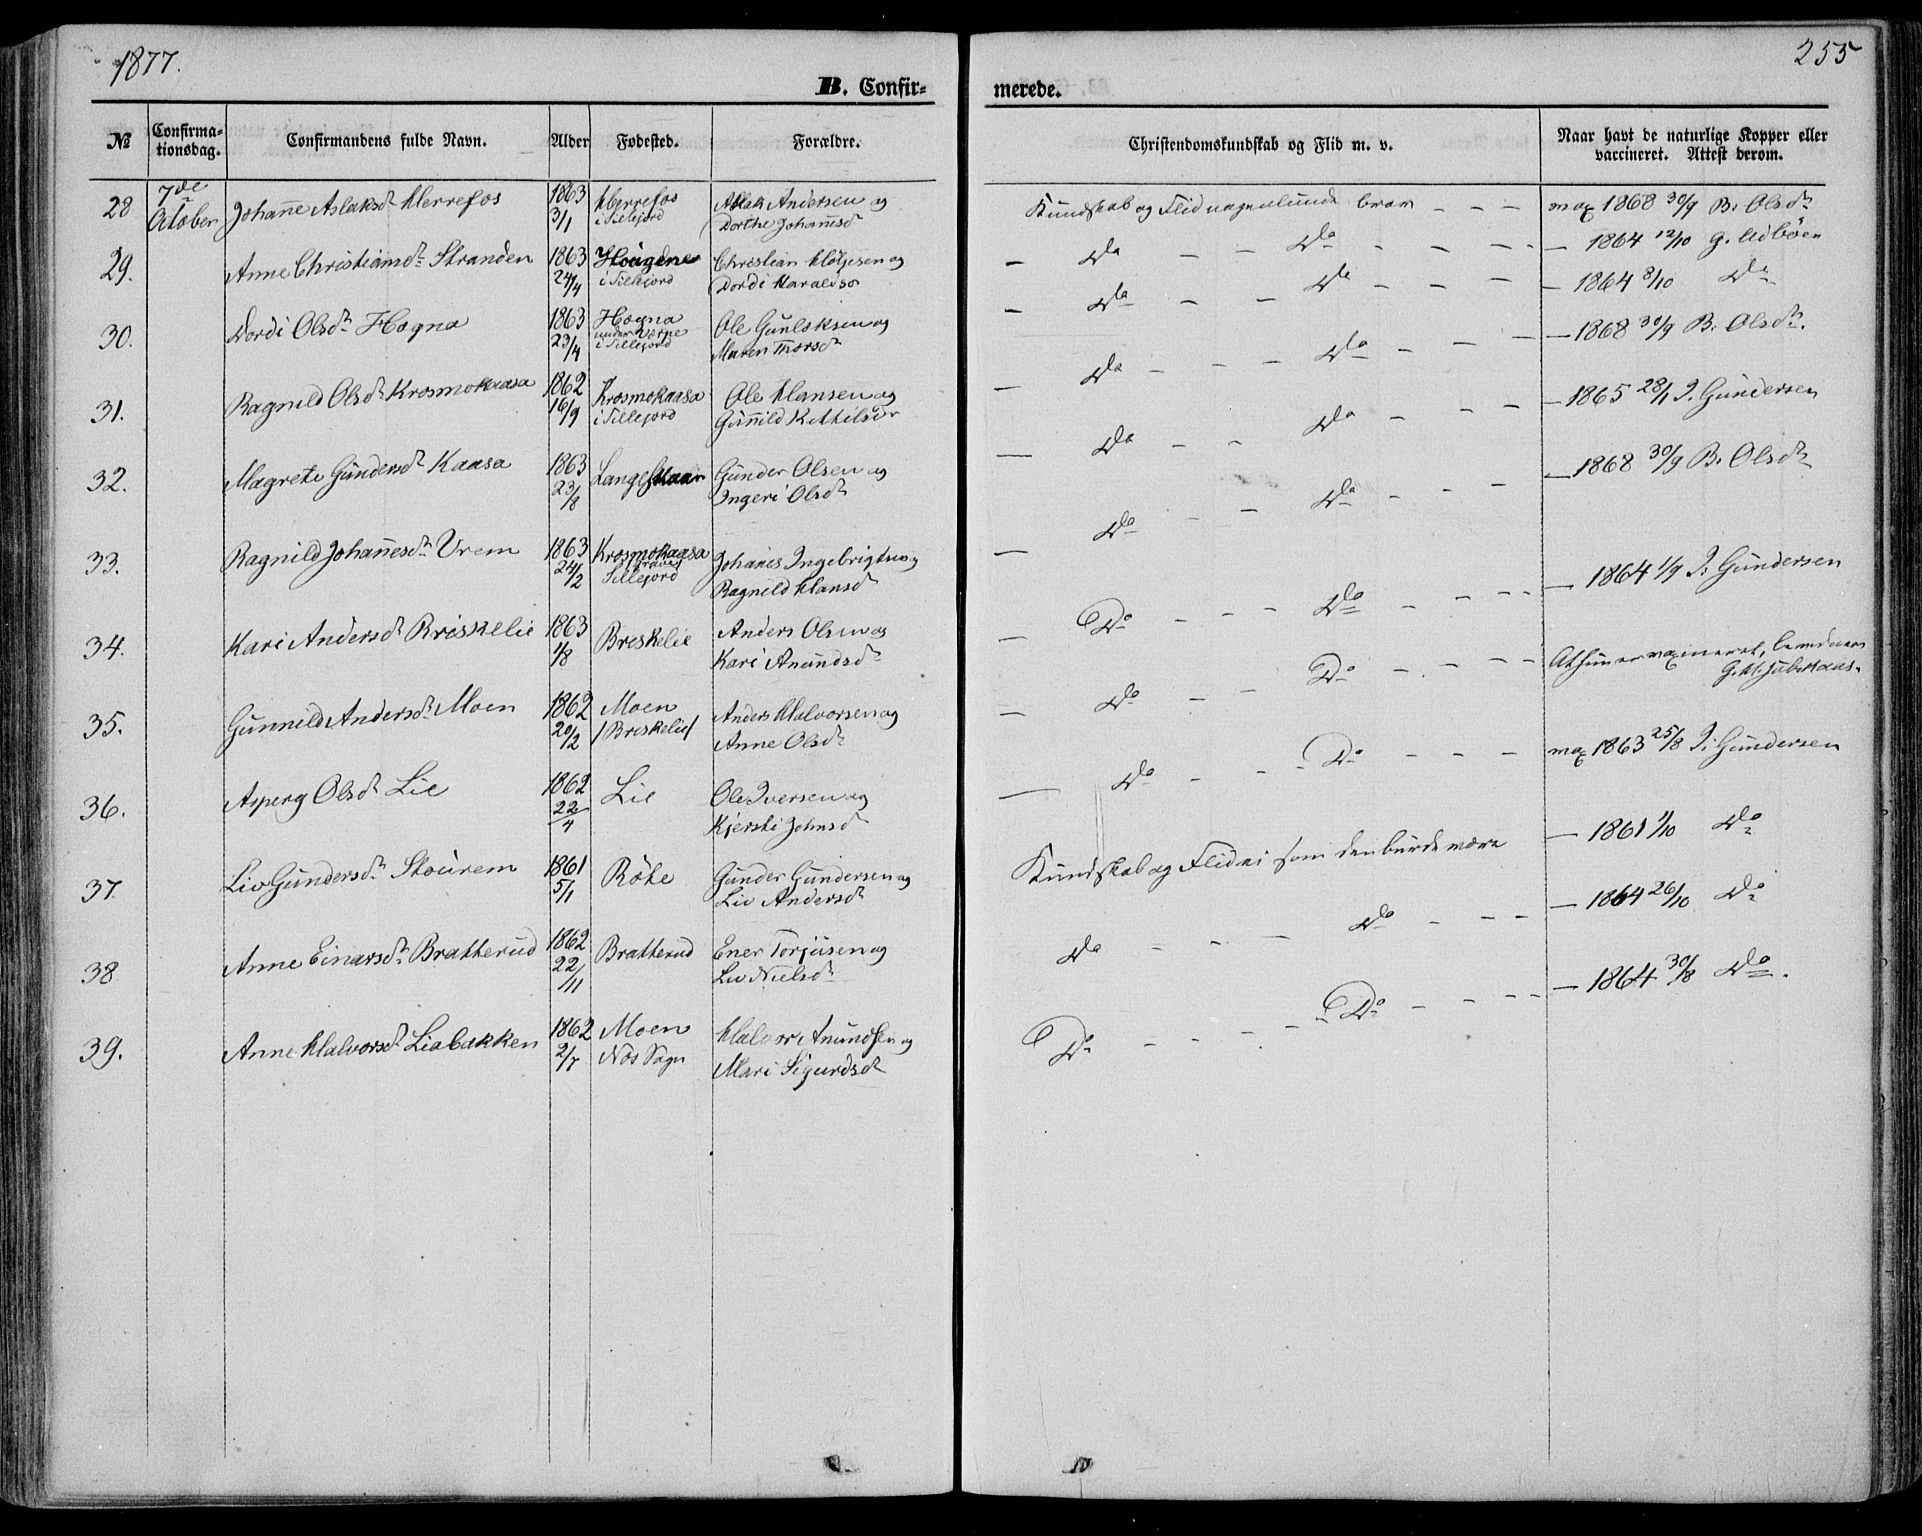 1877.
255
B. Confir-
merede.
№
Confirma-
tionsdag.
Confirmandens fulde Navn.
Alder
Fødested.
Forældre.
Christendomskundskab og Flid m. v.
Naar havt de naturlige Kopper eller
vaccineret. Attest derom.
28
7de
October
Johanne Aslaksd. Herrefos
1863
3/1
Herrefos
i Sillejord
Aslak Andersen og
Dorthe Johannesd
Kundskab og Flid nogenlunde bra
1868 30/9 B. Olsd
29.
Anne Christiansd. Stranden
1863
24/4
Hougene
i Sillejord
Christian
Dordi Haralds
Do Do
1864 12/10 G. Udbøen
30.
Dordi Olsd. Høgna
1863
23/4
Høgna
i Sillejord
Ole Gunleksen og
Maren Thorsd
Do Do
1864 8/10 Do
31.
Ragnild Olsd. Krosmokaasa
1862
16/9
Krosmokaasa
i Sillejord
Ole Hansen og
Gunnild Kittilsd
Do Do
1868 30/9 B. Olsd.
32.
Magrete Gundersd. Kaasa
1863
23/8
Langeskaar
Gunder Olsen og
Ingeri Olsd.
Do Do
1865 28/1 I. Gundersen
33.
Ragnild Johannesd. Vrem
1863
24/2
Krosmokaasa
Sillejord
Johannes Ingebrigtsen og
Ragnild Hansd
Do Do
1868 30/9 B. Olsd.
34.
Kari Andersd. Briskelie
1863
1/8
Breskelie
Anders Olsen og
Kari Anundsd.
Do Do
1864 1/9 I. Gundersen
35.
Gunnild Andersd. Moen
1862
20/2
Moen
/Breskelie/
Anders Halvorsen og
Anne Olsd.
Do Do
At hun er vaxineret,
36.
Asperg Olsd. Lie
1862
22/4
Lie
Ole Iversen og
Kjersti Johnsd
Do Do
1863 25/8 I. Gundersen
37.
Liv Gundersd. Stourem
1861
5/1
Røte
Gunder Gundersen og
Liv Andersd.
Kundskab og Flid ei som den burde være
1861 1/10 Do
38
Anne Einarsd. Bratterud
1862
22/11
Bratterud
Ener Torjusen og
Liv Nielsd.
Do Do
1864 26/10 Do
39.
Anne Halvorsd. Liabakken
1862
2/7
Moen
Næs Sogn
Halvor Anundsen og
Mari Sigurdsd.
Do Do
1864 30/8 Do.